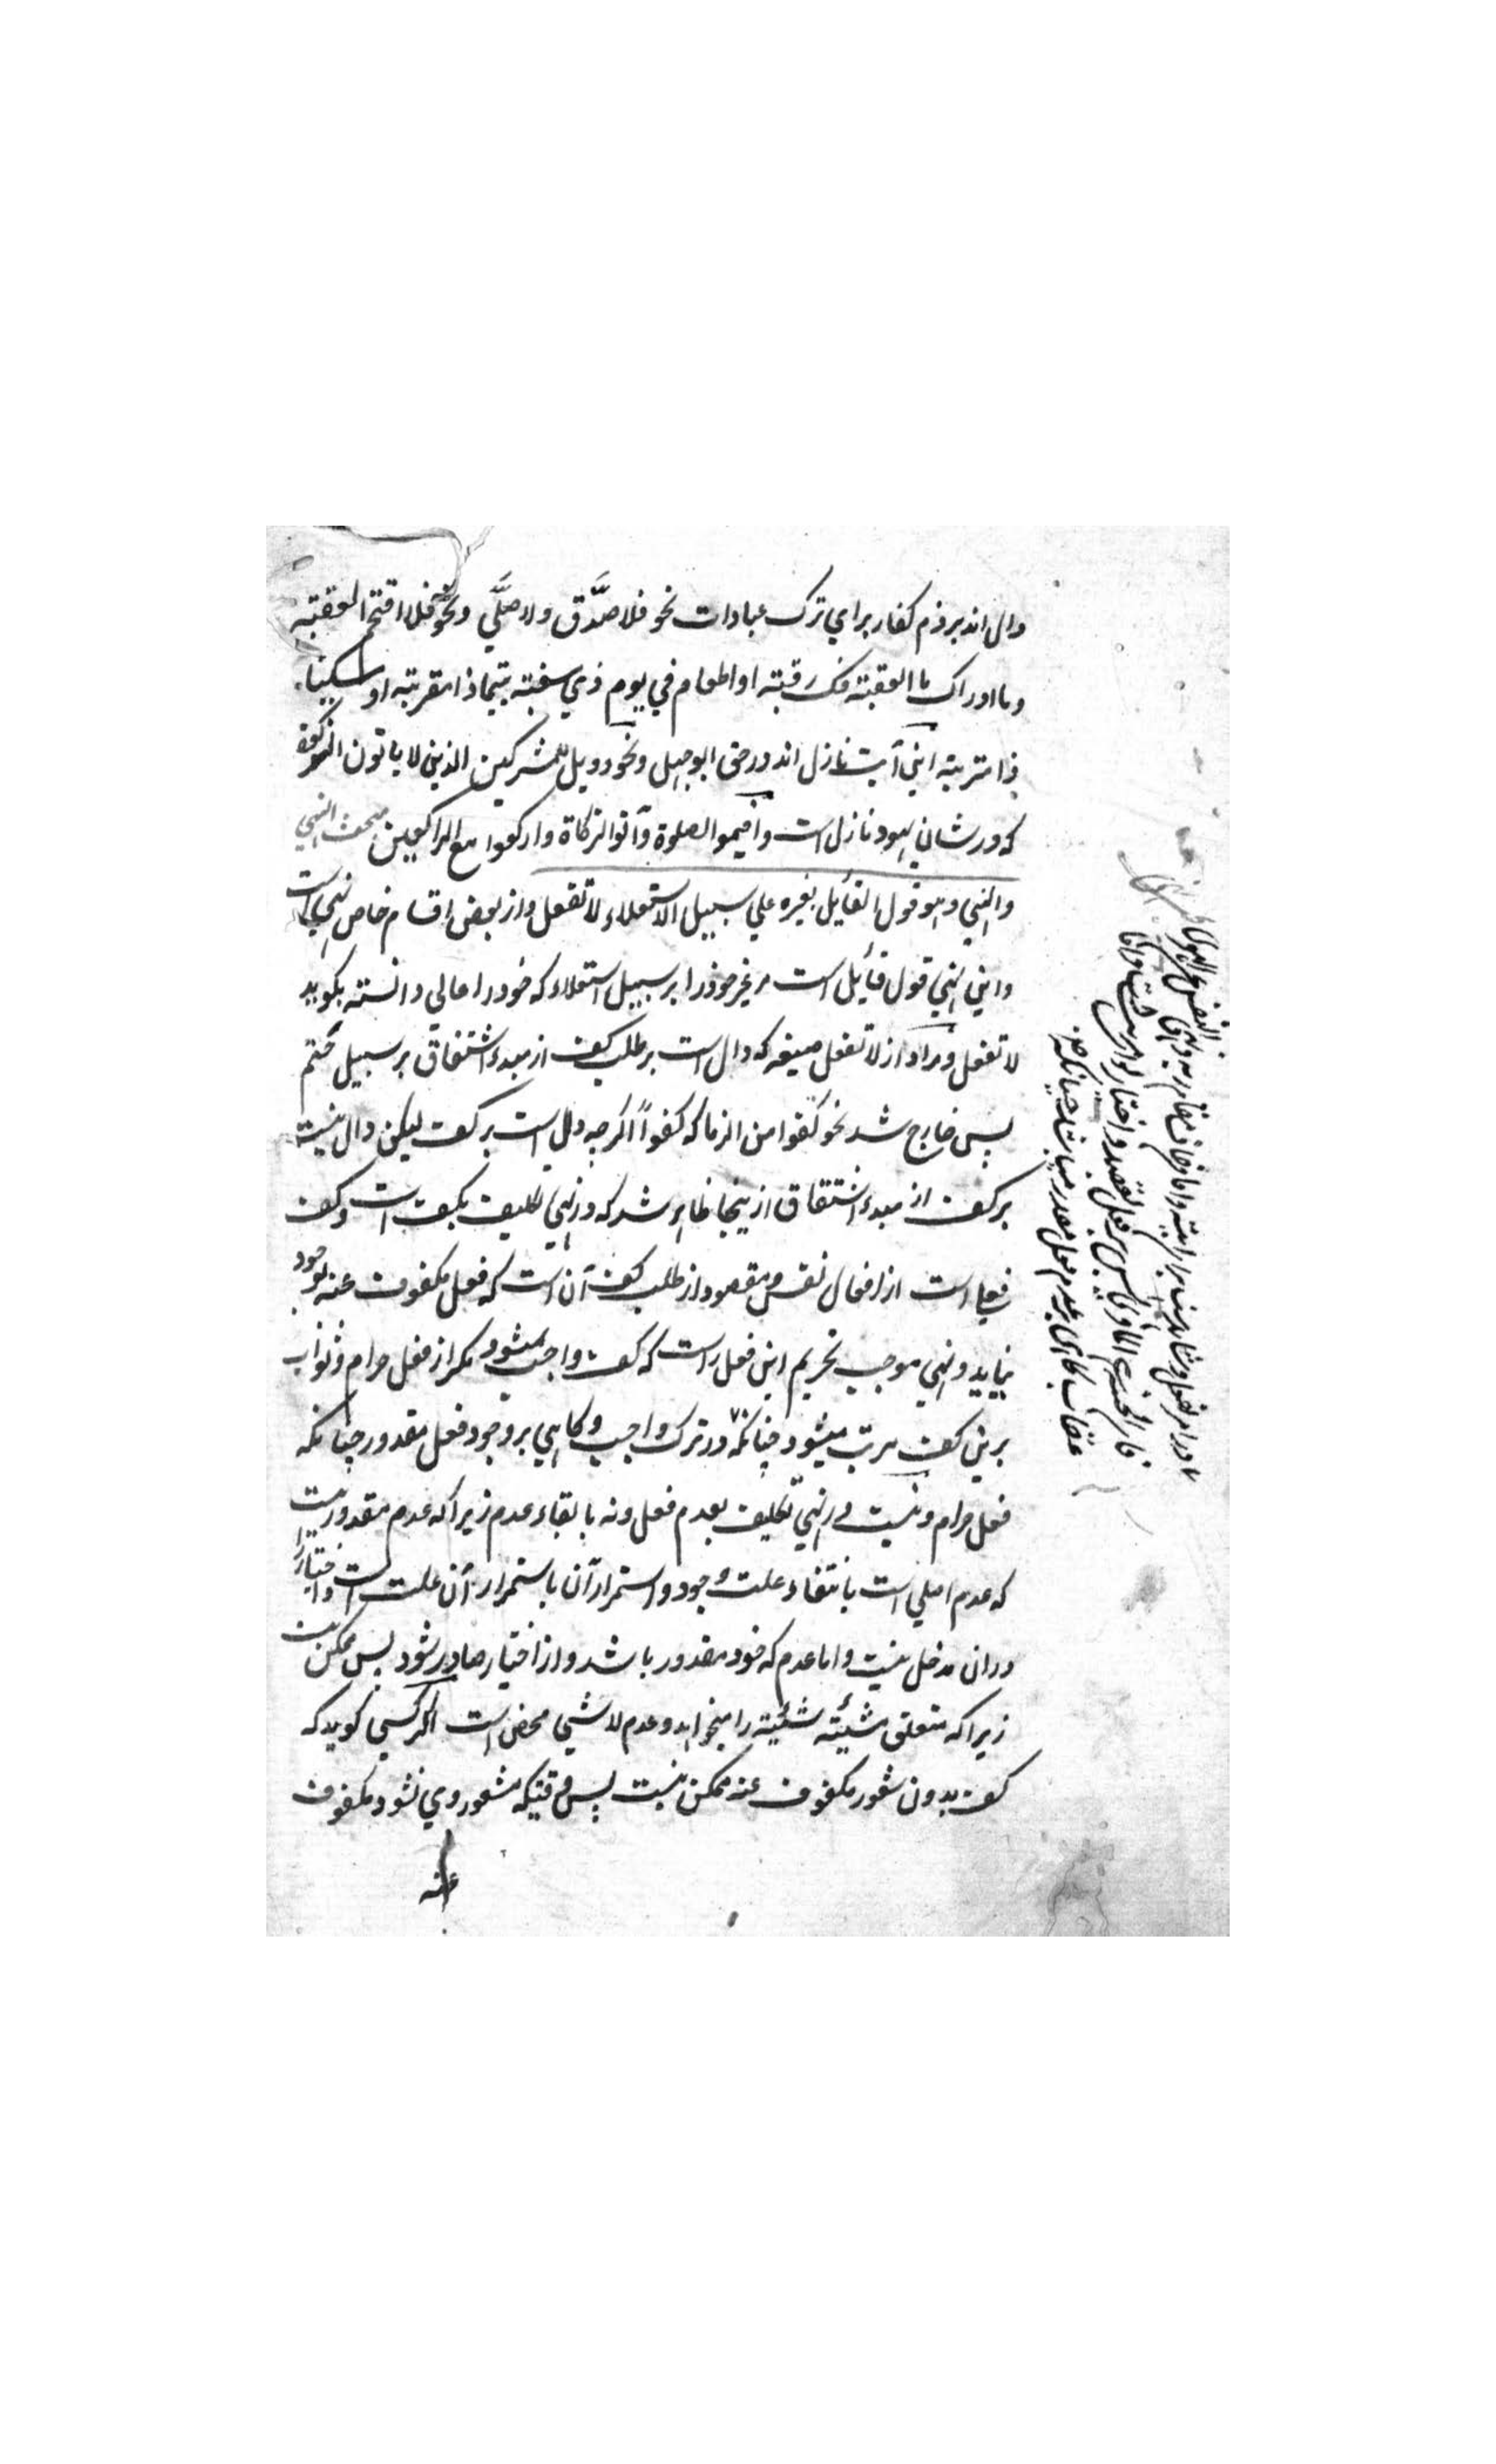 دال اند بر ذم کفار برای ترک عبادات نحو فلا صدَّق ولا صلَّی ونحو فلا اقتحم العقبته
وما ادراک ما العقبته فک رقبته او اطعام فی یوم ذی مسغبته یتیما ذا مقربته او مسکینا
ذا متربته این آیت نازل اند در حق ابو جهل ونحو وویل للمشرکین الذین لا یاتون الزکوة
که در شان یهود نازل است واقیموا الصلوة وآتوا الزکاة وارکعوا مع الراکعین مبحث النهی
والنهی وهو قول القائل لغیره علی سبیل الاستعلاء لا تفعل واز بعض اقسام خاص نهی است
واین نهی قول قائل است مر غیر خود را بر سبیل استعلاء که خود را عالی دانسته بگوید
لا تفعل ومراد از لا تفعل صیغه که دال است بر طلب کف از مبدء اشتقاق بر سبیل حتم
پس خارج شد نحو کفوا من الزنا که کفواً اگرچه دال است بر کف لیکن دال نیست
بر کف از مبدء اشتقاق ازینجا ظاهر شد که در نهی تکلیف بکف است وکف
فعلی است از افعال نفس ومقصود از طلب کف آن است که فعل مکفوف عنه بوجود
نیاید ونهی موجب تحریم این فعل است که کف واجب نمیشود مگر از فعل حرام وثواب
برین کف مرتب میشود چنانکه در ترک واجب وگاهی بر وجود فعل مقدور چنانکه
فعل حرام ونیست در نهی تکلیف بعدم فعل ونه بابقاء عدم زیراکه عدم مقدور نیست
که عدم اصلی است بانتفاء علت وجود واستمرار آن باستمرار آن علت است واختیار را
دران مدخل نیست واما عدم که خود مقدور باشد واز اختیار صادر شود پس ممکن نیست
زیراکه متعلق مشیئته شیئیته را میخواهد وعدم لا شیئ محض است اگر کسی گوید که
کف بدون شعور مکفوف عنه ممکن نیست پس وقتیکه مشعور وی نشود مکفوف
عنه
النفس عن الهوی
فان الجنة هی المأوی پس
عقاب گاهی بر عدم فعل مقدور میباشد چنانکه